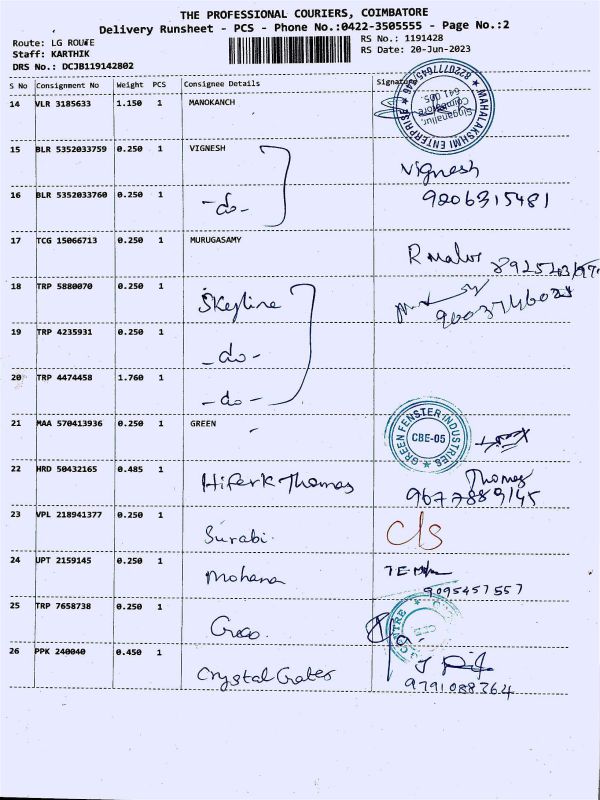 THE PROFESSIONAL COURIERS, COIMBATORE
Delivery Runsheet - PCS - Phone No.:0422-3505555 - Page No.:2
Route: LG ROUTE RS No.: 1191428
Staff: KARTHIK RS Date: 20-Jun-2023
DRS No.: DCJB119142802
S No Consignment No Weight PCS Consignee Details Signature
14 VLR 3185633 1.150 1 MANOKANCH
MAHALAKSHMI ENTERPRISE
Singanallur,
Coimbatore
641 005.
15 BLR 5352033759 0.250 1 VIGNESH Vignesh
16 BLR 5352033760 0.250 1 -do- 9206315481
17 TCG 15066713 0.250 1 MURUGASAMY
18 TRP 5880070 0.250 1 Skyline
19 TRP 4235931 0.250 1 -do-
20 TRP 4474458 1.760 1 -do-
21 MAA 570413936 0.250 1 GREEN
GREEN FENSTER INDUSTRIES
CBE-05
22 HRD 50432165 0.485 1 Hiferk Thomas Thomas
9677889145
23 VPL 218941377 0.250 1 Surabi C/s
24 UPT 2159145 0.250 1 Mohana
9095457557
25 TRP 7658738 0.250 1
26 PPK 240040 0.450 1 Crystal Grates
9791088364